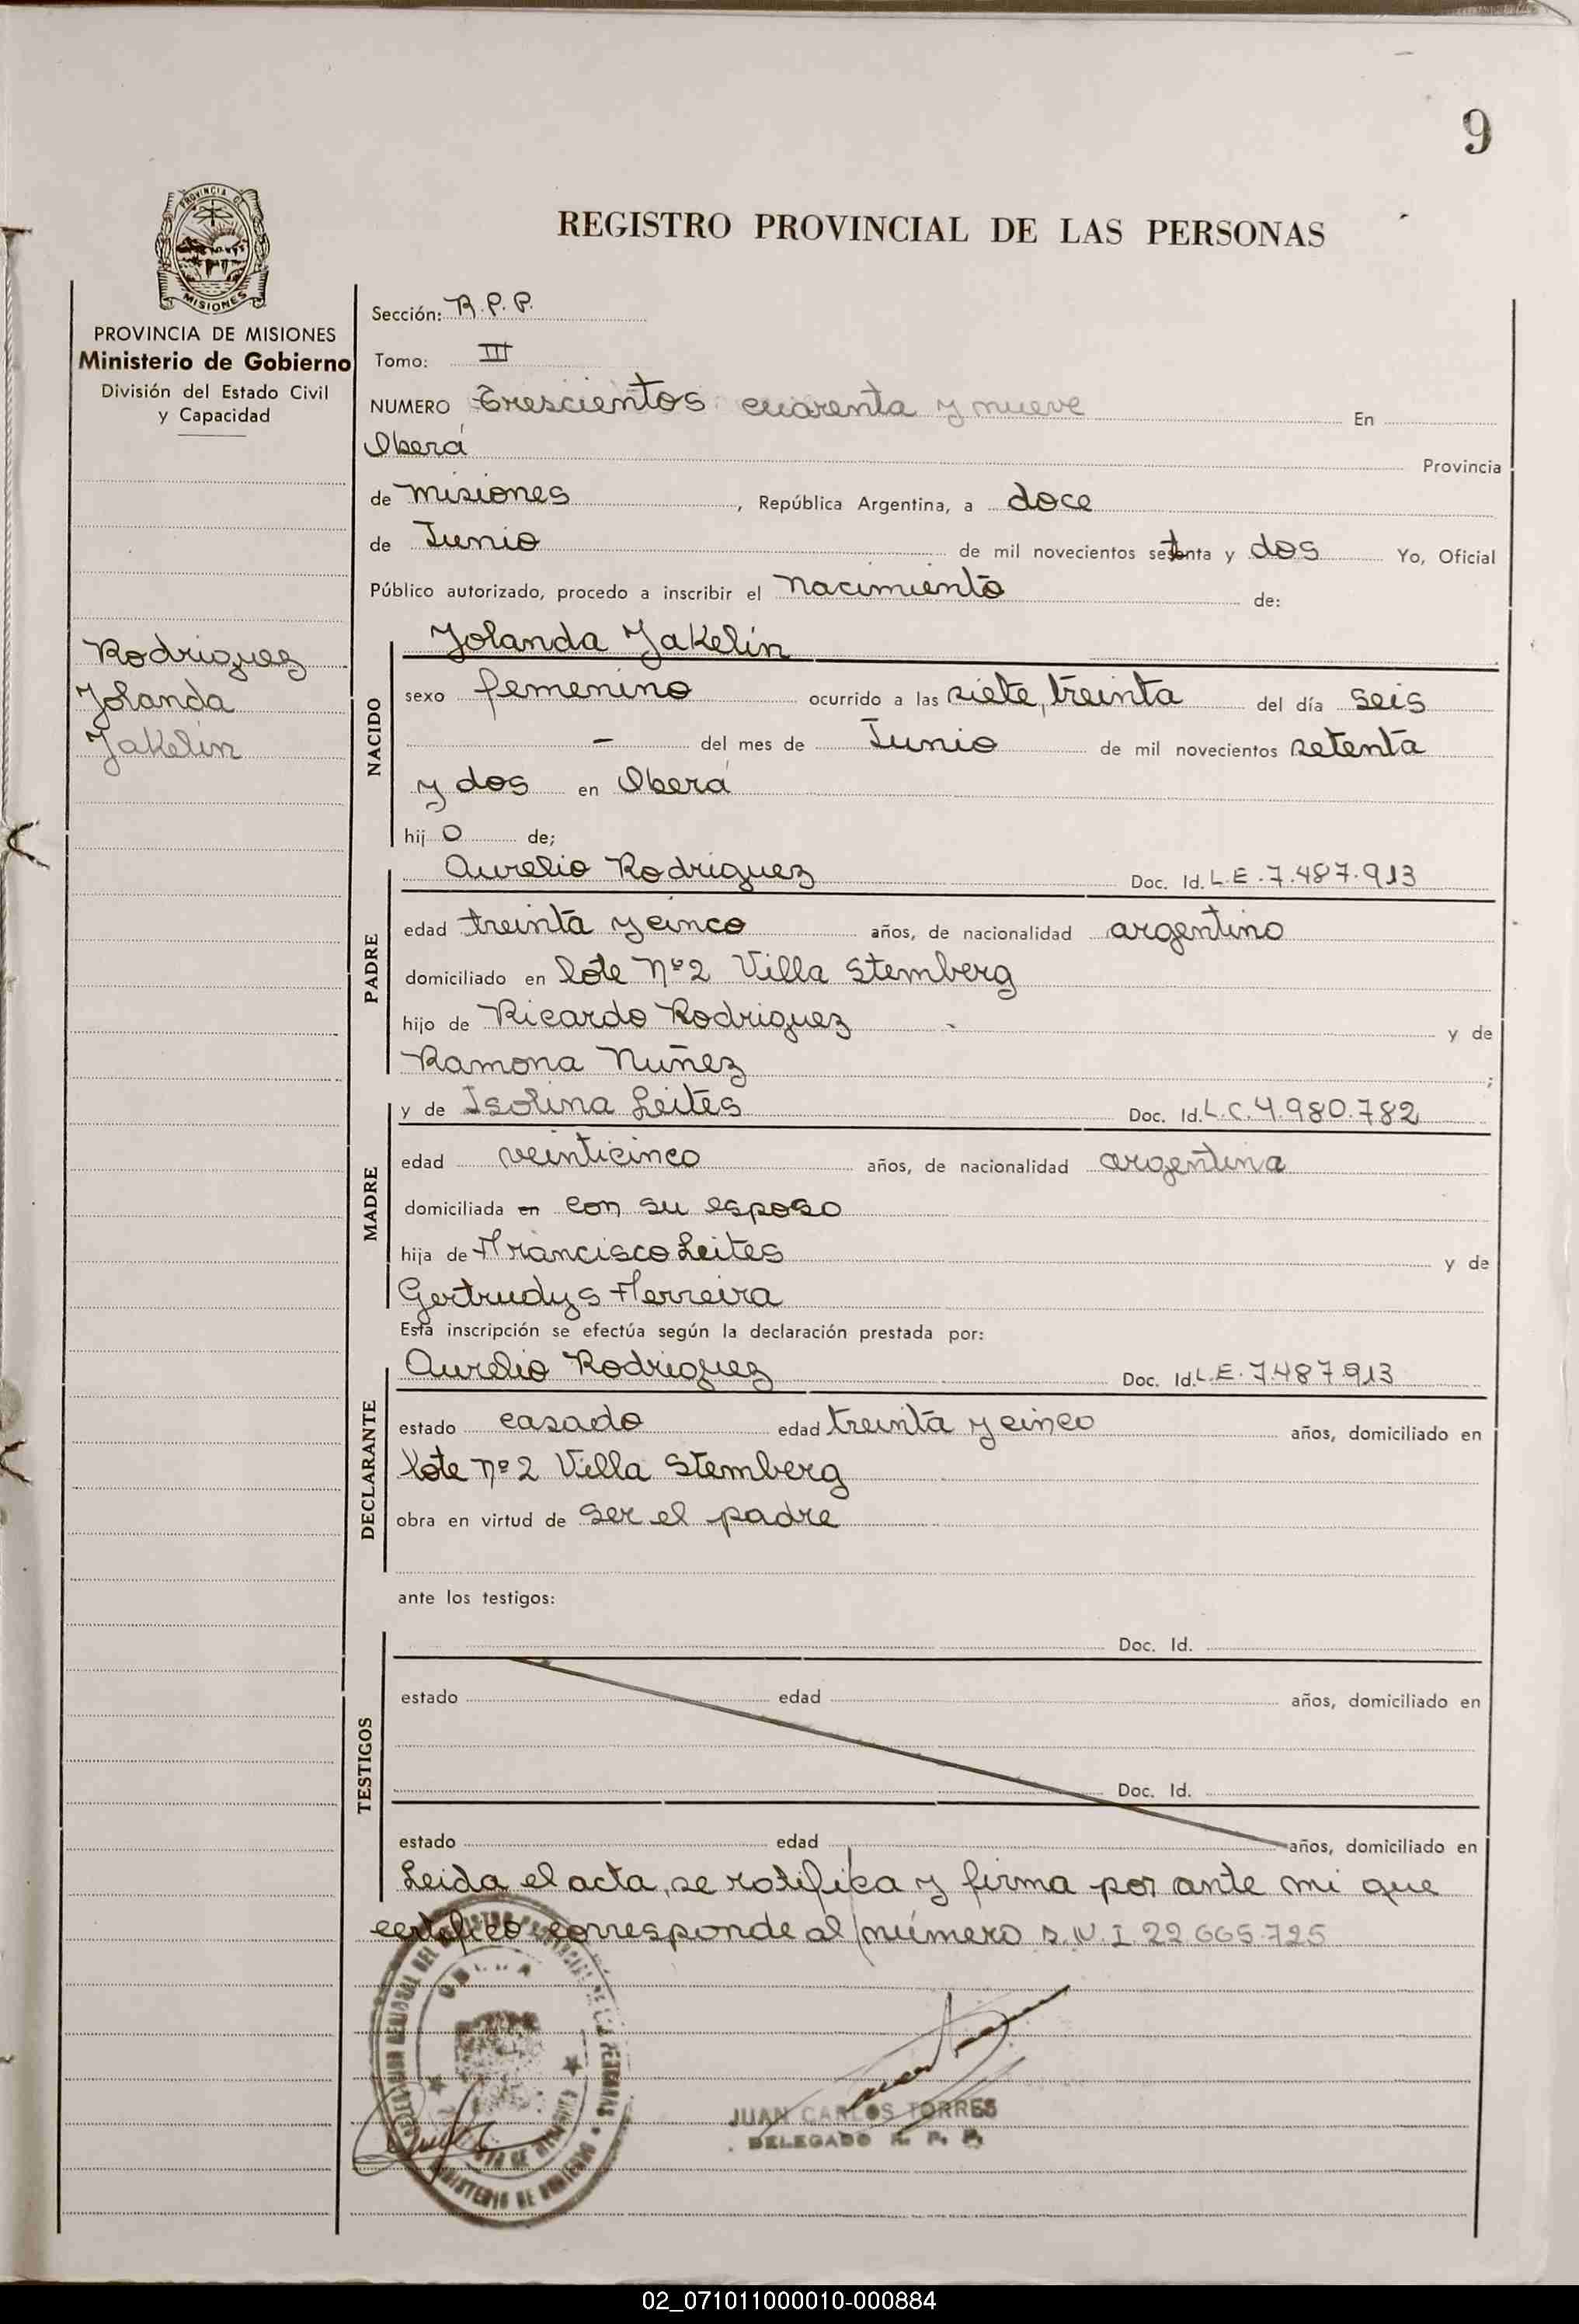 9
PROVINCIA DE
MISIONES
REGISTRO PROVINCIAL DE LAS PERSONAS
PROVINCIA DE MISIONES
Ministerio de Gobierno
División del Estado Civil
y Capacidad
Rodriguez
Yolanda
Yakelin
Sección: R.P.P.
Tomo: III
NUMERO Trescientos cuarenta y nueve En
Oberá Provincia
de Misiones, República Argentina, a doce
de Junio de mil novecientos setenta y dos Yo, Oficial
Público autorizado, procedo a inscribir el Nacimiento de:
NACIDO
Yolanda Yakelin
sexo femenino ocurrido a las siete, treinta del día seis
- del mes de Junio de mil novecientos setenta
y dos en Oberá
hij o de;
PADRE
Aurelio Rodriguez Doc. Id. L.E. 7.487.913
edad treinta y cinco años, de nacionalidad argentino
domiciliado en lote Nº2 Villa Stemberg
hijo de Ricardo Rodriguez y de
Ramona Nuñez ;
MADRE
y de Isolina Leites Doc. Id. L.C. 4.980.782
edad veinticinco años, de nacionalidad argentina
domiciliada en con su esposo
hija de Francisco Leites y de
Gertrudys Ferreira
Esta inscripción se efectúa según la declaración prestada por:
DECLARANTE
Aurelio Rodriguez Doc. Id. L.E. 7.487.913
estado casado edad treinta y cinco años, domiciliado en
lote nº2 Villa Stemberg
obra en virtud de ser el padre
ante los testigos:
TESTIGOS
Doc. Id.
estado edad años, domiciliado en
Doc. Id.
estado edad años, domiciliado en
Leida el acta, se ratifica y firma por ante mi que
certifico corresponde al número D.N.I. 22.665.725
JUAN CARLOS TORRES
DELEGADO R. P. P.
02_071011000010-000884